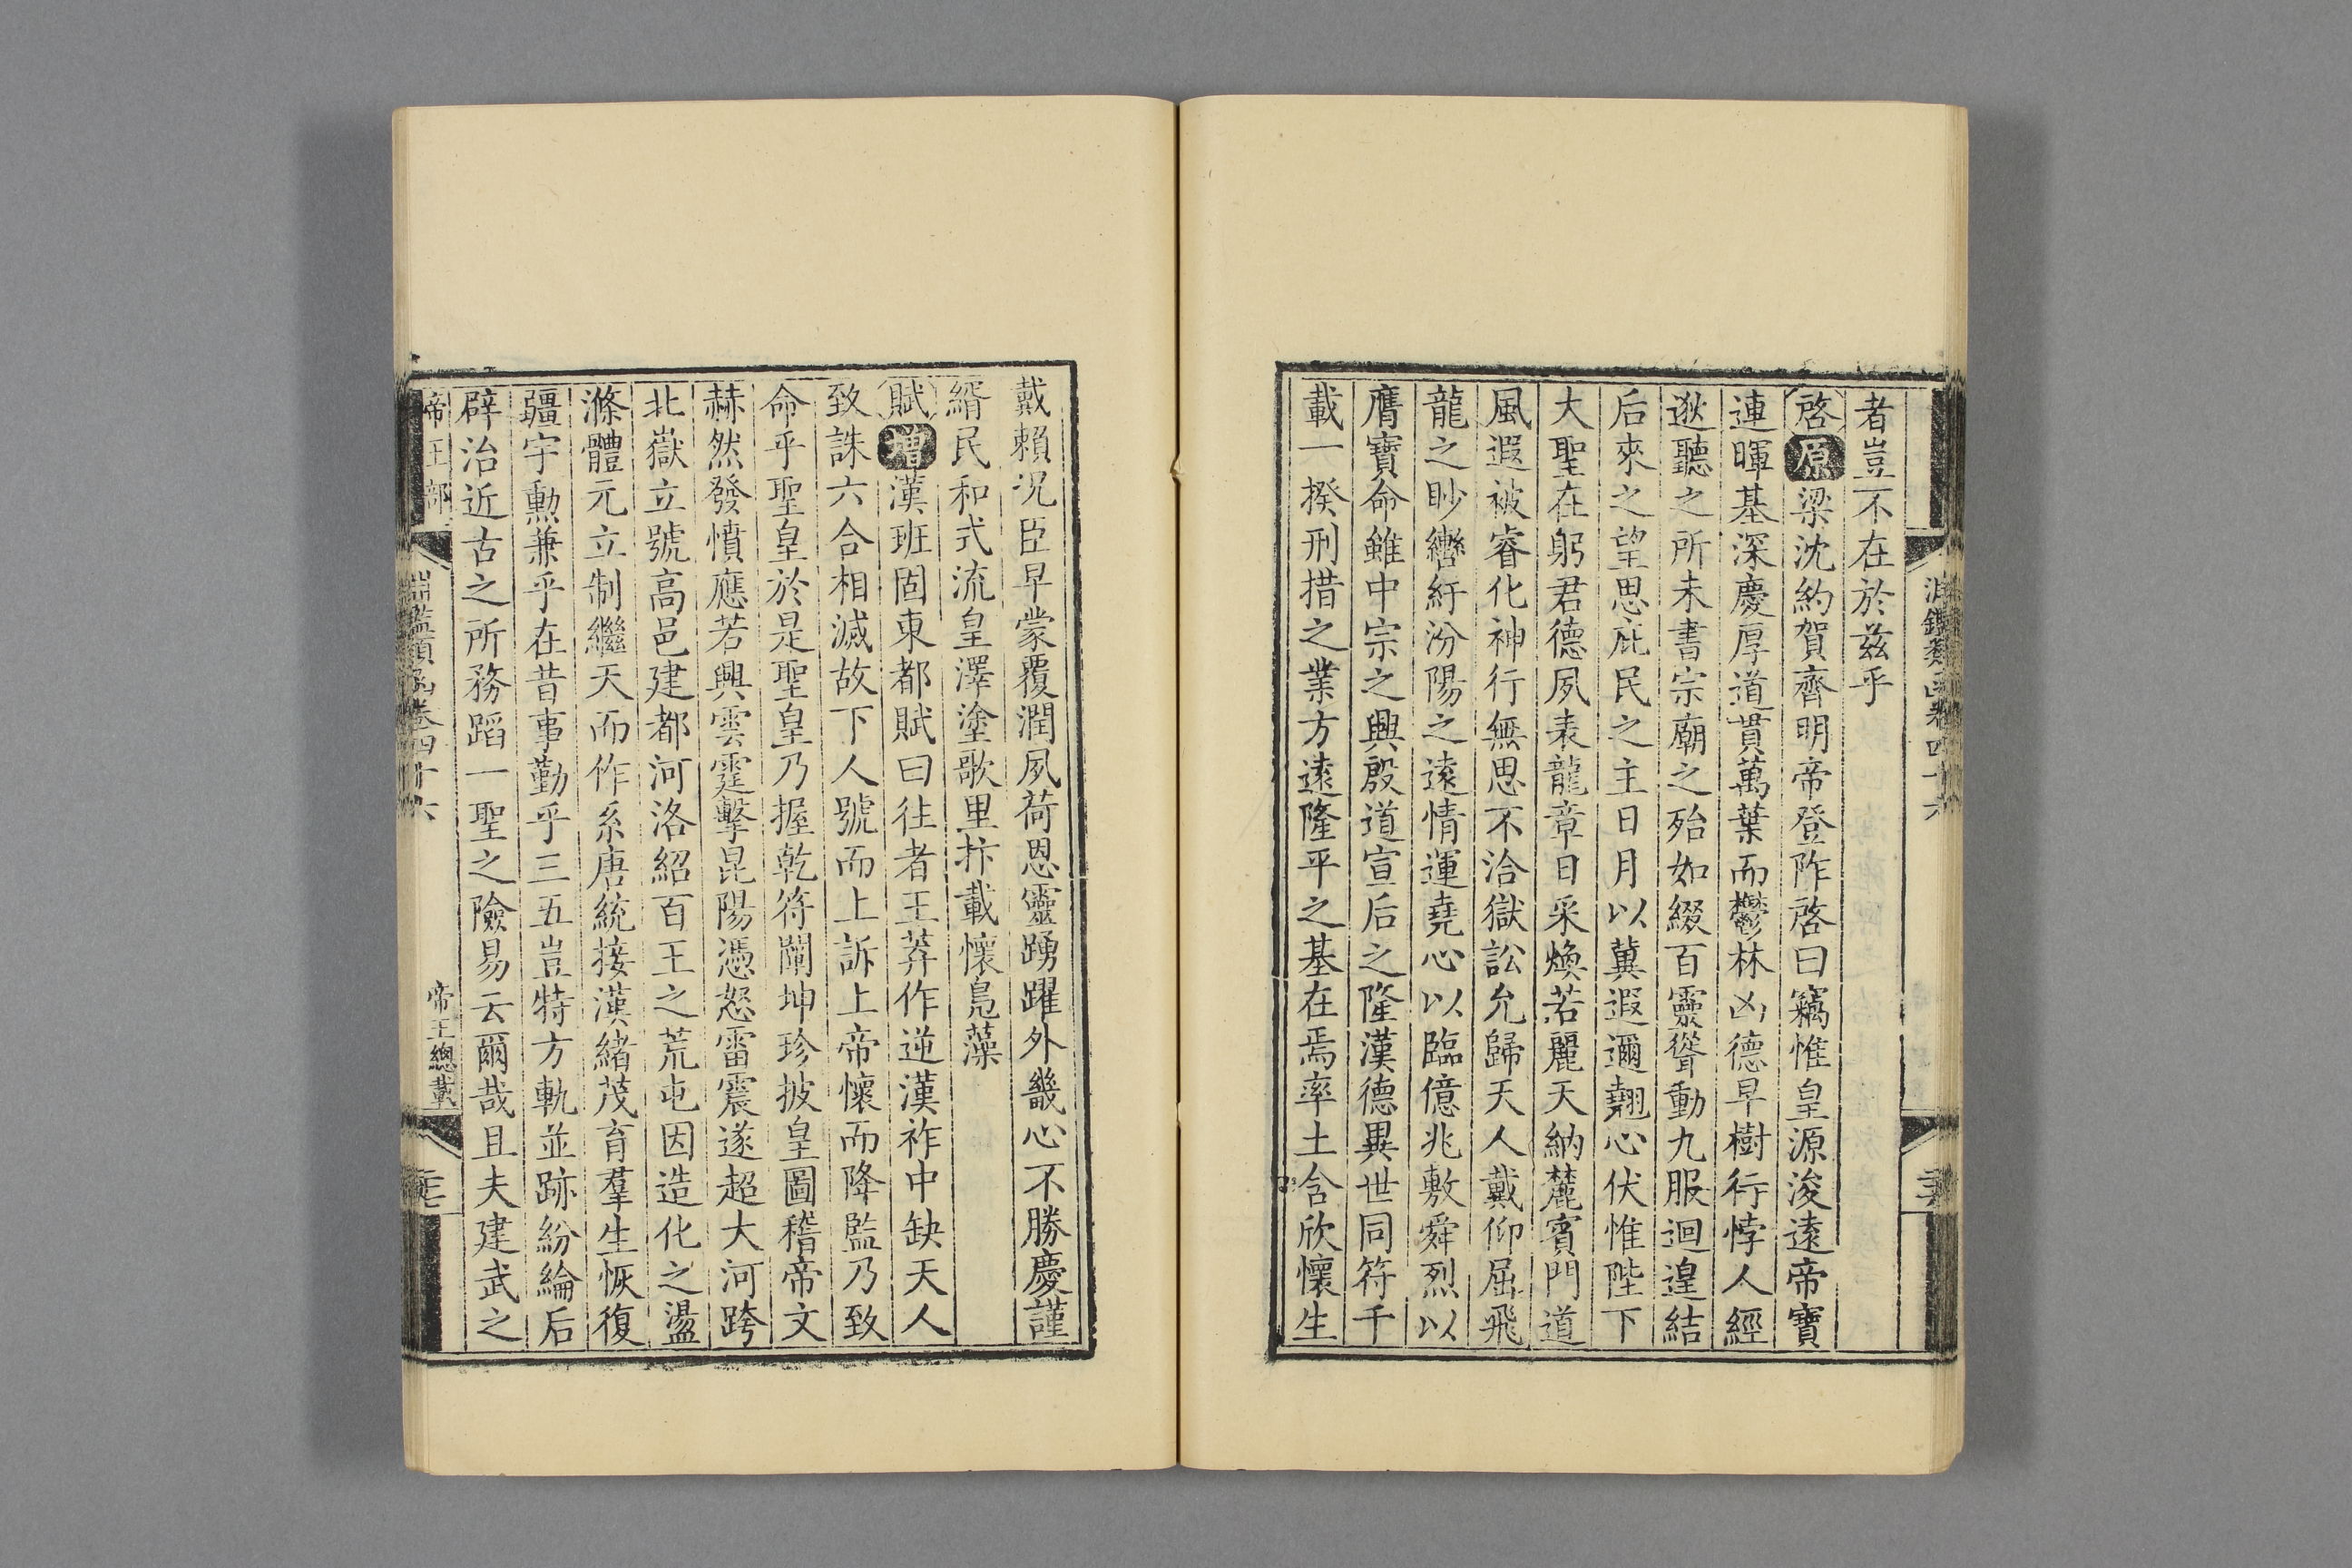 淵鑑類函卷四十六
二十六
者豈不在於兹乎
啓原梁沈約賀齊明帝登阼啓曰竊惟皇源浚遠帝寶
連暉基深慶厚道貫萬葉而鬱林凶德早樹行悖人經
逖聽之所未書宗廟之殆如綴百靈聳動九服迴遑結
后來之望思庇民之主日月以冀遐邇翹心伏惟陛下
大聖在躬君德夙表龍章日采煥若麗天納麓賓門道
風遐被睿化神行無思不洽獄訟允歸天人戴仰屈飛
龍之眇轡紆汾陽之遠情運堯心以臨億兆敷舜烈以
膺寶命雖中宗之興殷道宣后之隆漢德異世同符千
載一揆刑措之業方遠隆平之基在焉率土含欣懷生
戴賴況臣早蒙覆潤夙荷恩靈踴躍外畿心不勝慶謹
縎民和式流皇澤塗歌里抃載懷凫藻
賦增漢班固東都賦曰往者王莽作逆漢祚中缺天人
致誅六合相滅故下人號而上訴上帝懷而降監乃致
命乎聖皇於是聖皇乃握乾符闡坤珍披皇圖稽帝文
赫然發憤應若興雲霆擊昆陽憑怒雷震遂超大河跨
北嶽立號高邑建都河洛紹百王之荒屯因造化之盪
滌體元立制繼天而作系唐統接漢緒茂育羣生恢復
疆宇勳兼乎在昔事勤乎三五豈特方軌並跡紛綸后
辟治近古之所務蹈一聖之險易云爾哉且夫建武之
帝王部
淵鑑類函卷四十六
帝王總載
二十七